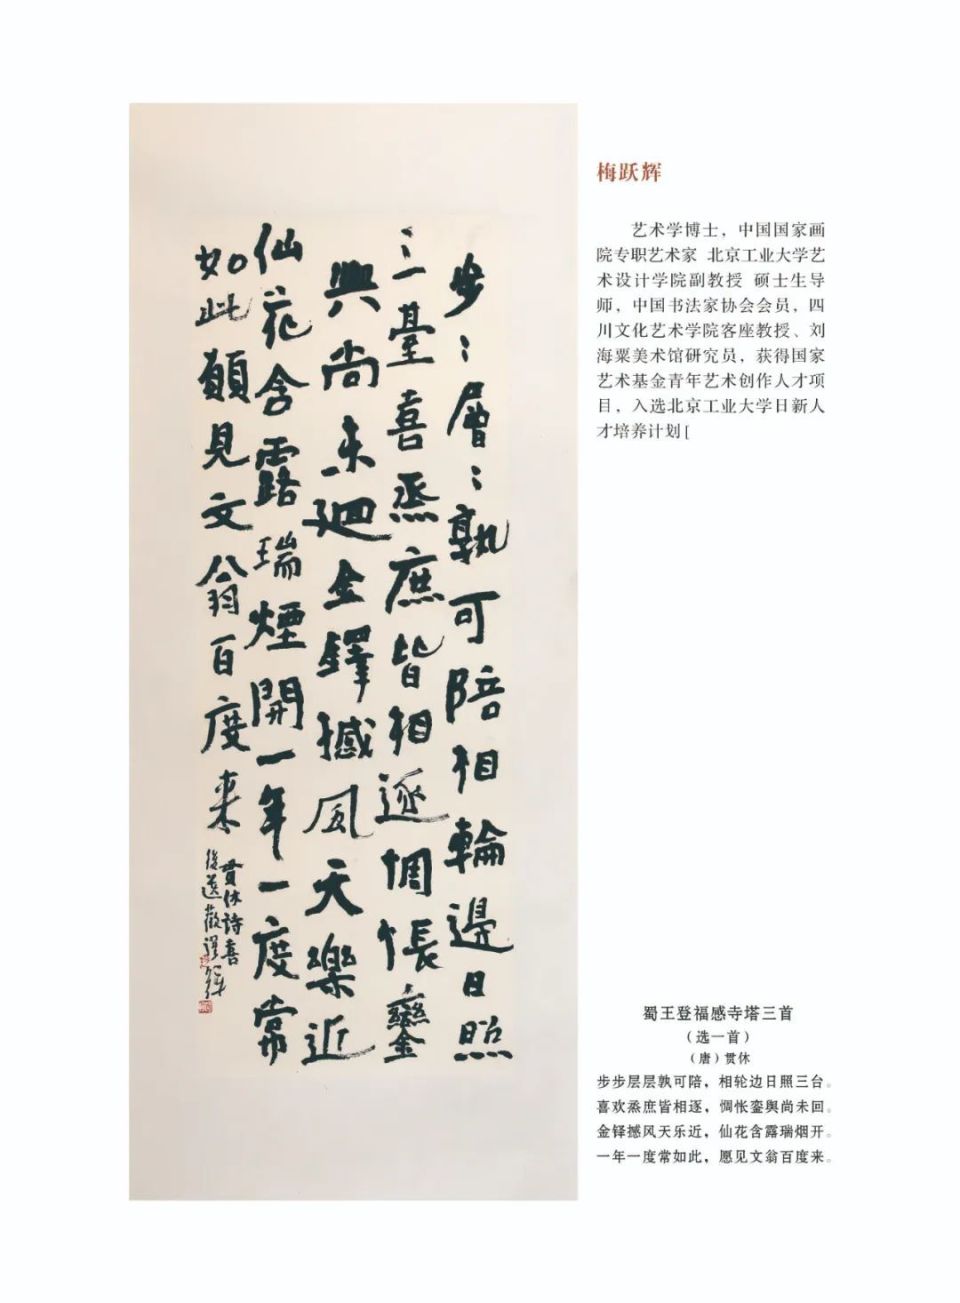 梅跃辉
艺术学博士，中国国家画
院专职艺术家 北京工业大学艺
术设计学院副教授 硕士生导
师，中国书法家协会会员，四
川文化艺术学院客座教授、刘
海粟美术馆研究员，获得国家
艺术基金青年艺术创作人才项
目，入选北京工业大学日新人
才培养计划[
步〻層〻孰可陪相輪邊日照
三臺喜烝庶皆相逐惆悵鑾
輿尚未迴金鐸撼風天樂近
仙花含露瑞煙開一年一度常
如此願見文翁百度來
貫休詩喜
後遺歡躍輝
蜀王登福感寺塔三首
（选一首）
（唐）贯休
步步层层孰可陪，相轮边日照三台。
喜欢烝庶皆相逐，惆怅銮舆尚未回。
金铎撼风天乐近，仙花含露瑞烟开。
一年一度常如此，愿见文翁百度来。